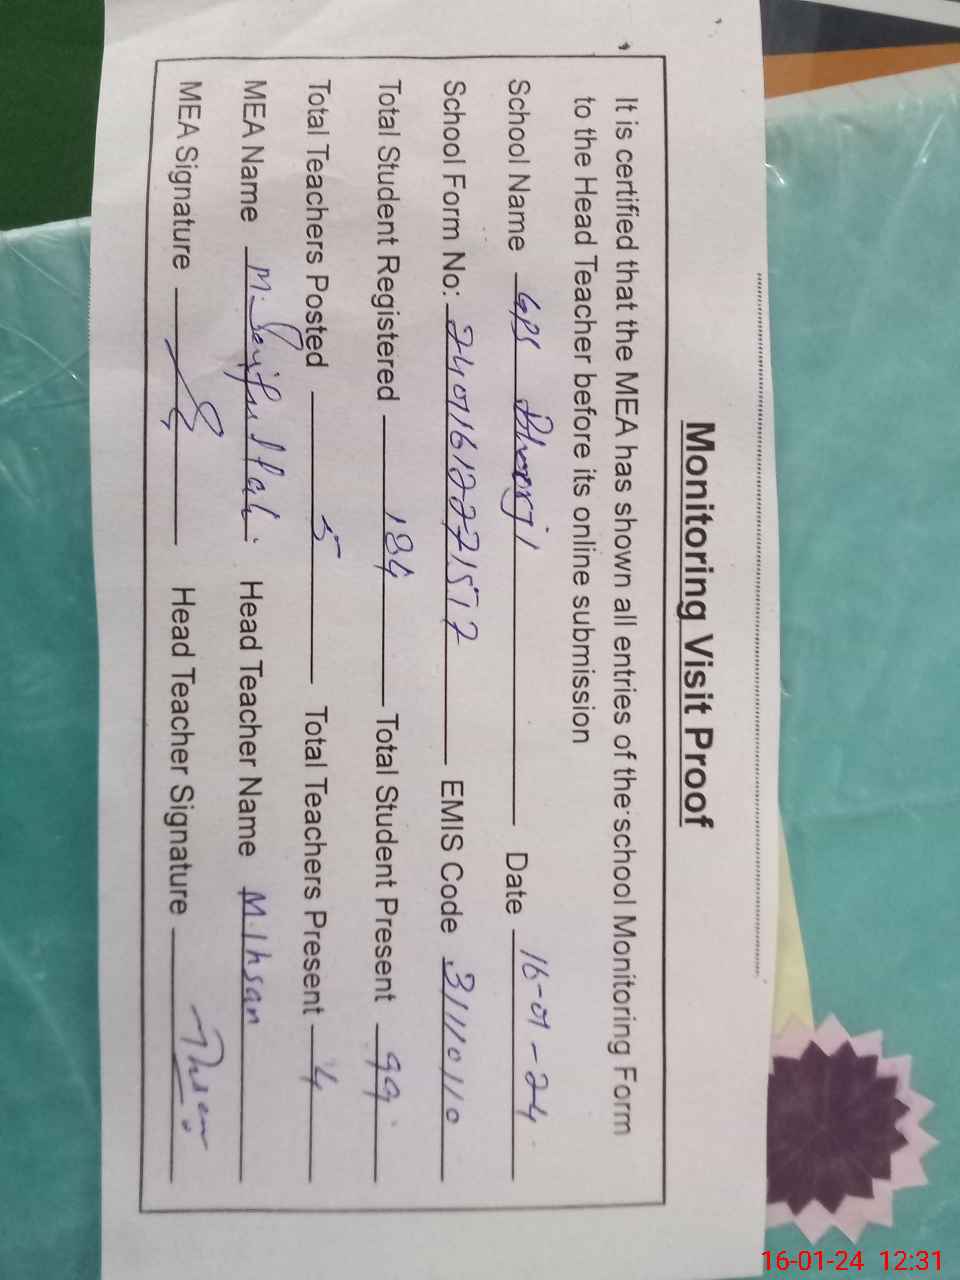 Monitoring Visit Proof
It is certified that the MEA has shown all entries of the school Monitoring Form
to the Head Teacher before its online submission
School Name GPS Date 16-01-24
School Form No: 24011612271577 EMIS Code 31110110
Total Student Registered 184 Total Student Present 99
Total Teachers Posted 5 Total Teachers Present 4
MEA Name M. Saifullah Head Teacher Name M. Ihsan
MEA Signature Head Teacher Signature
16-01-24 12:31